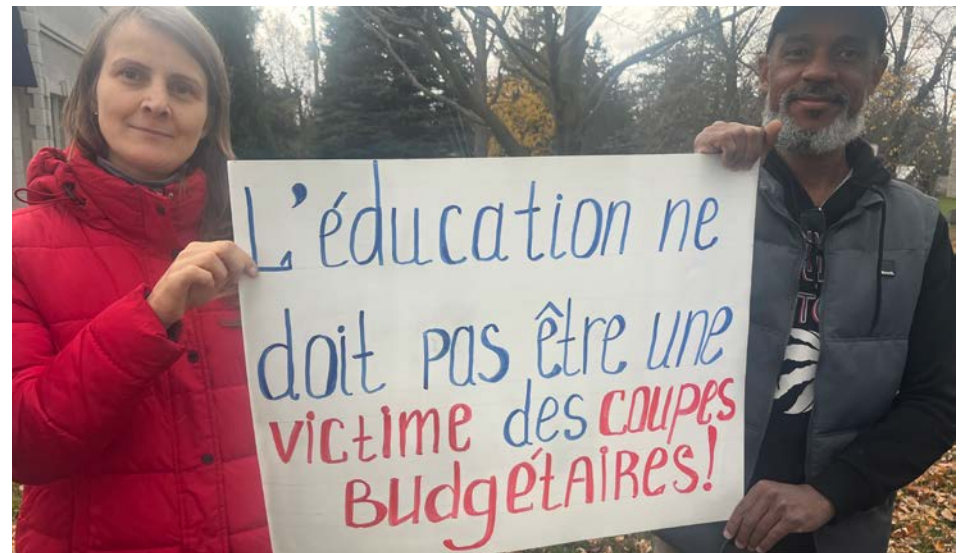 L'éducation ne
doit pas être une
victime des coupes
BUdgétAIRES!